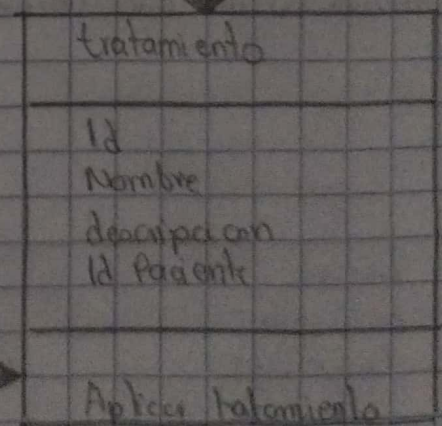 tratamiento
Id
Nombre
descripcion
Id Paciente
Aplicar tratamiento